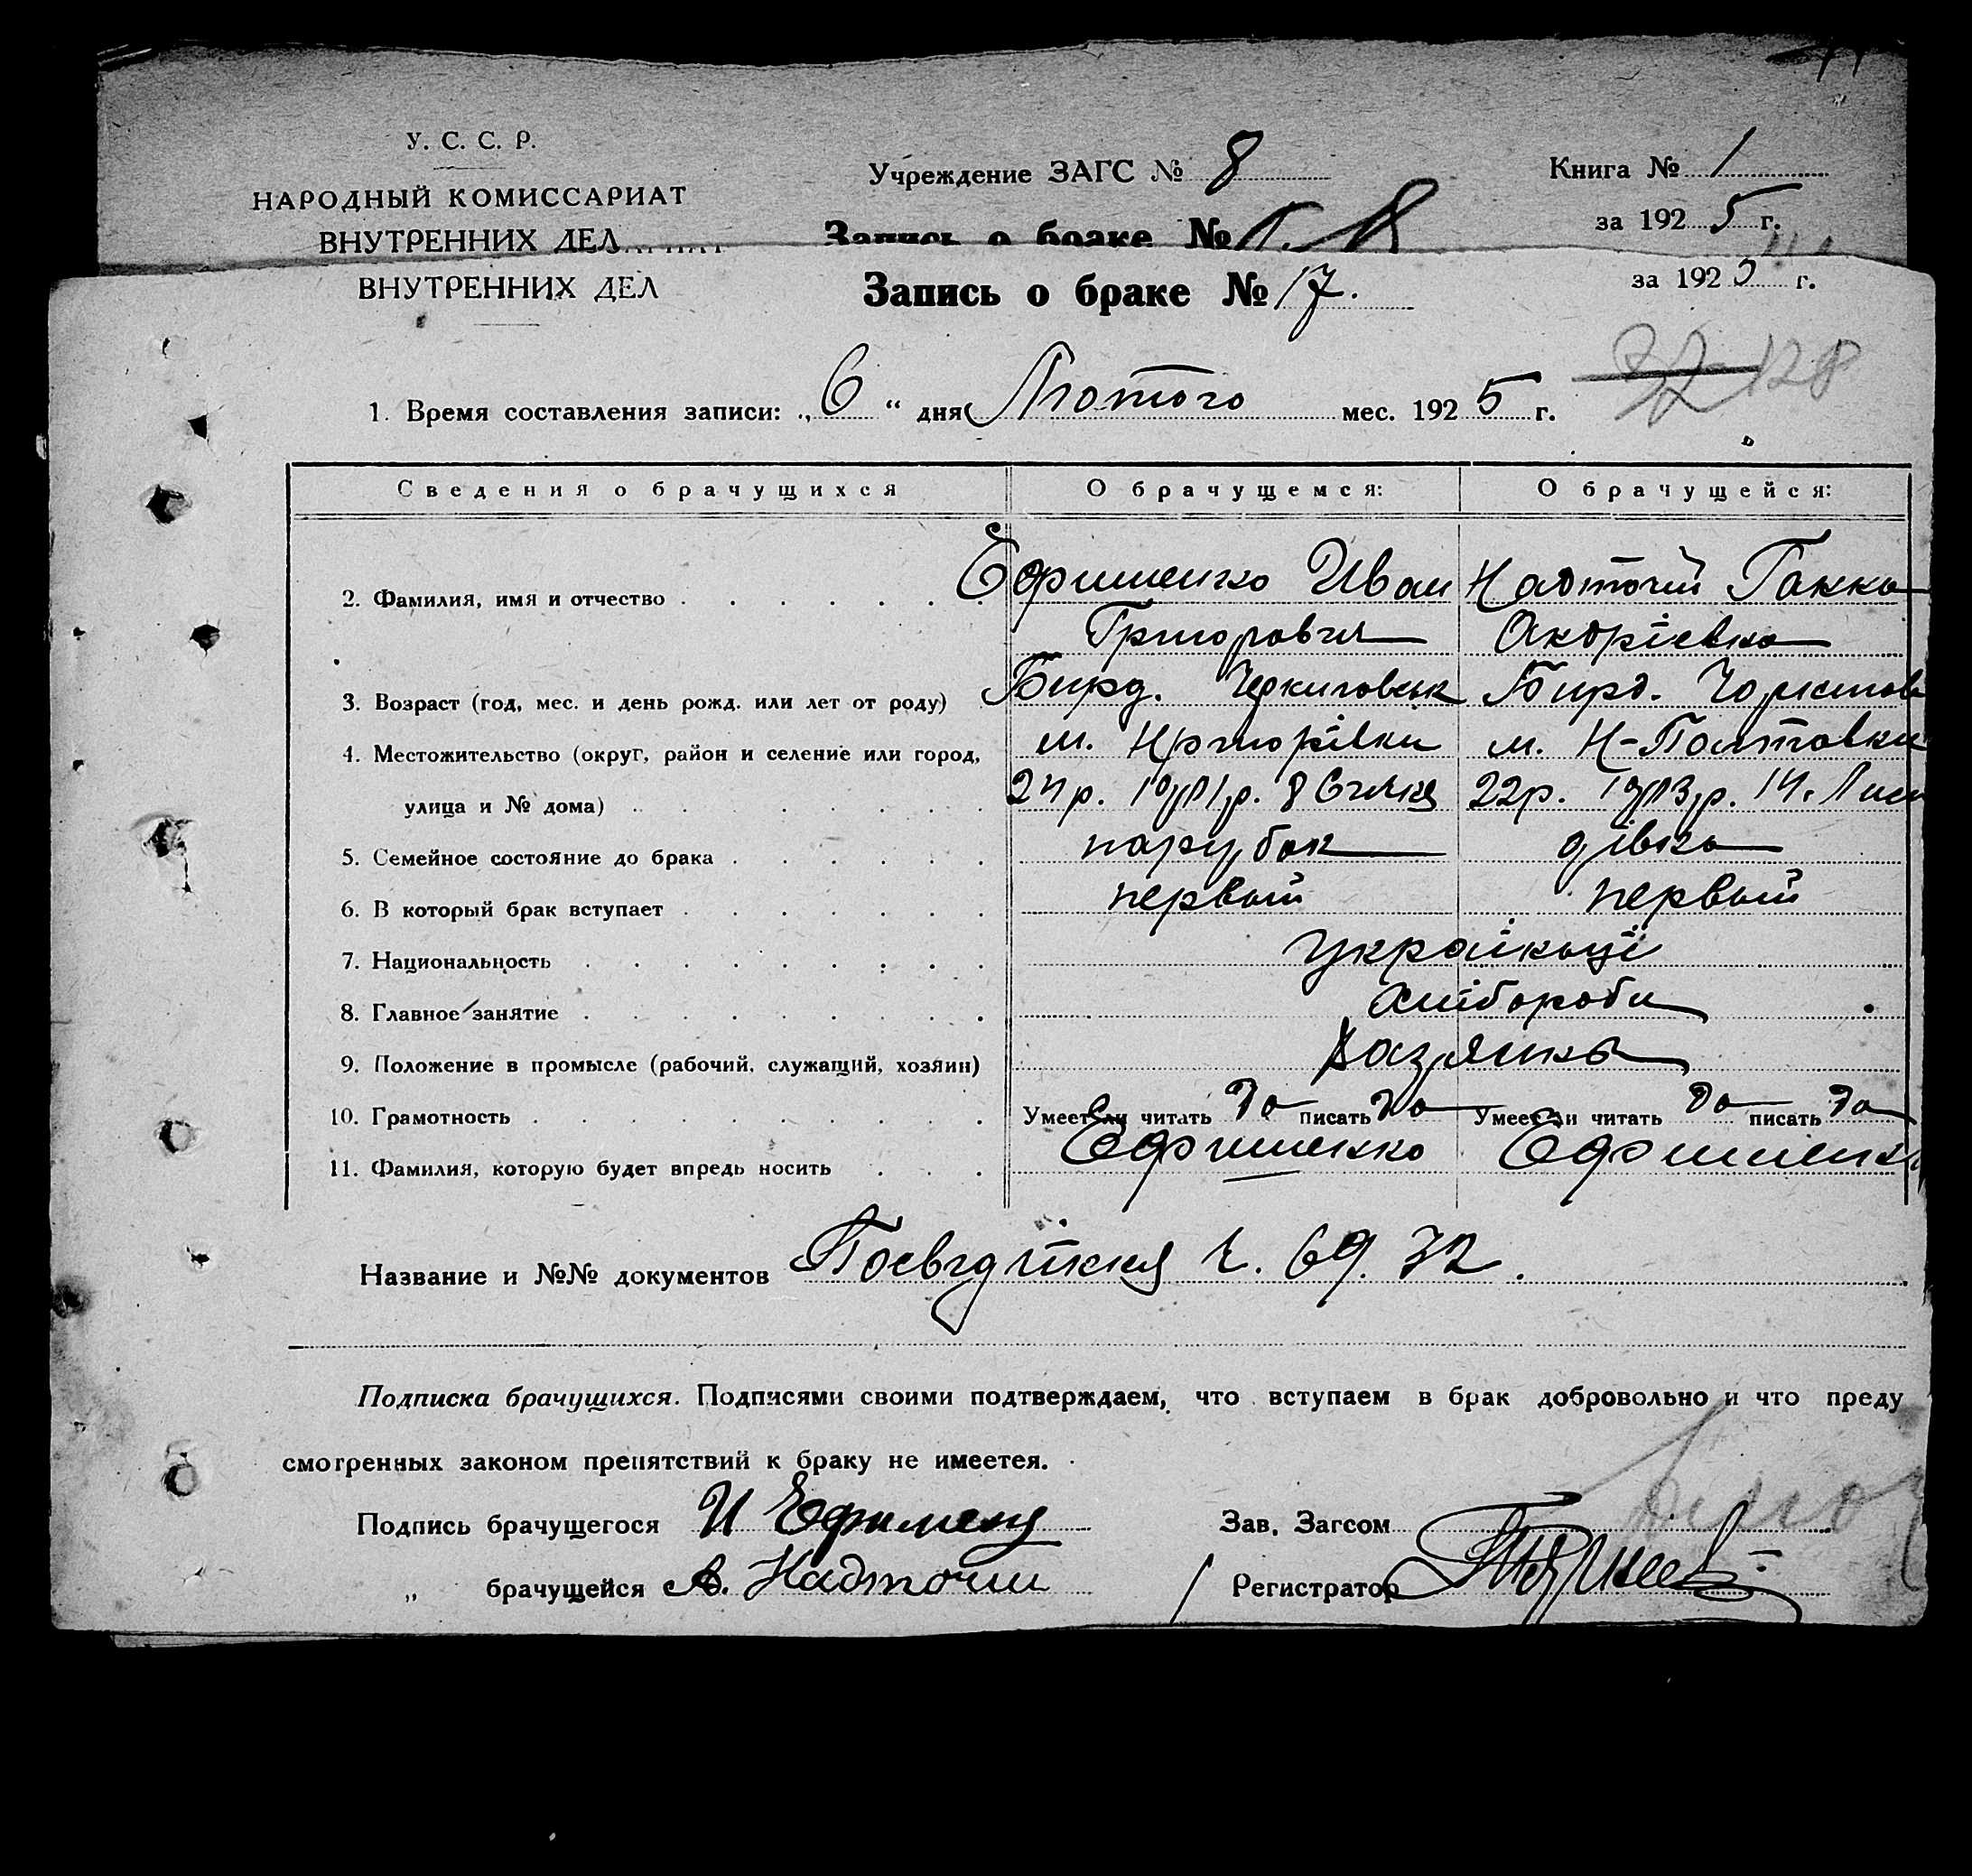 У. С. С. Р.
НАРОДНЫЙ КОМИССАРИАТ
ВНУТРЕННИХ ДЕЛ
Учреждение ЗАГС № 8
Книга № 1
за 1925 г.
Запись о браке №
ВНУТРЕННИХ ДЕЛ
Запись о браке № 17.
за 1925 г.
37 128
1. Время составления записи: „6“ дня Лютого мес. 1925 г.
Сведения о брачущихся О брачущемся: О брачущейся:
2. Фамилия, имя и отчество Ефименко Иван Надточий Ганна
Григорович Андріевна
3. Возраст (год, мес. и день рожд. или лет от роду) Бирд. Бирд.
4. Местожительство (округ, район и селение или город, Н-Полтавки
улица и № дома) 24 р. 1901 р. 8 Січня 22 р. 1903 р. 14.
5. Семейное состояние до брака парубок дівка
6. В который брак вступает первый первый
7. Национальность українці
8. Главное занятие хлібороби
9. Положение в промысле (рабочий, служащий, хозяин)
10. Грамотность Умеет ли читать да писать да Умеет ли читать да писать да
11. Фамилия, которую будет впредь носить Ефименко Ефименко
Название и №№ документов Посвідчення ч. 69. 72.
Подписка брачущихся. Подписями своими подтверждаем, что вступаем в брак добровольно и что преду
смотренных законом препятствий к браку не имеетея.
Подпись брачущегося И Ефименко Зав. Загсом
„ брачущейся А. Надточий Регистратор